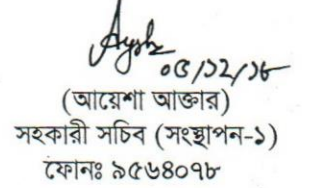 ০৫/১২/১৮
(আয়েশা আক্তার)
সহকারী সচিব (সংস্থাপন-১)
ফোনঃ ৯৫৬৪০৭৮